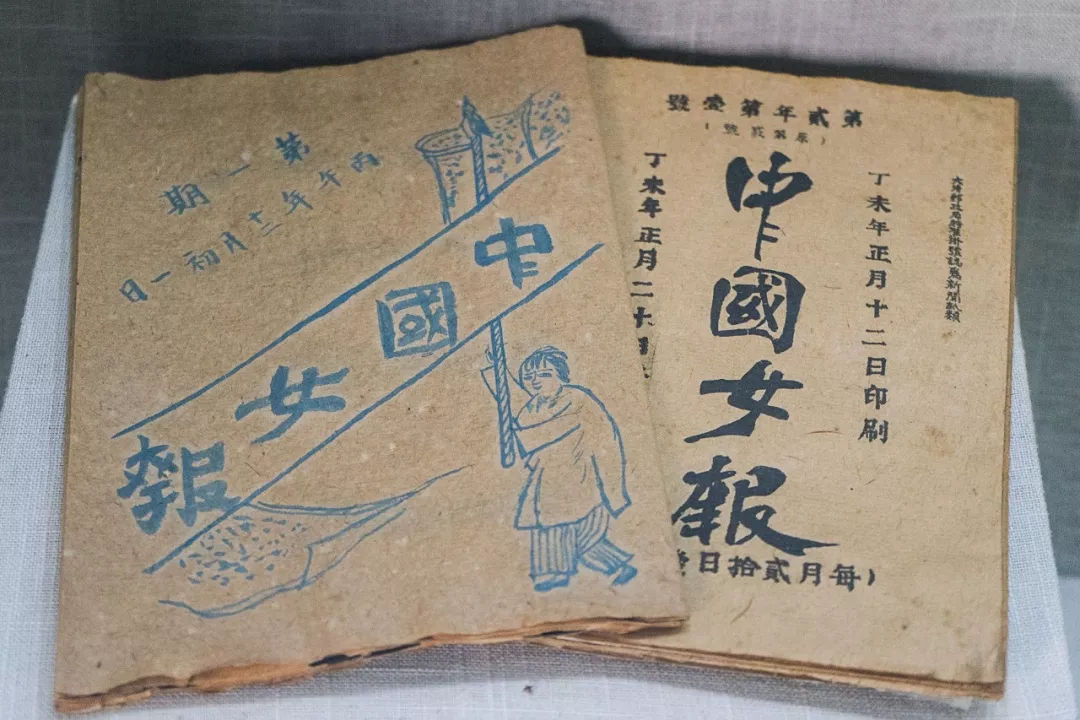 第一期
丙午年十二月初一日
中國女報
第貳年第壹號
(原第貳號)
大清郵政局特准掛號認爲新聞紙類
丁未年正月十二日印刷
中國女報
丁未年正月二十日
(每月貳拾日